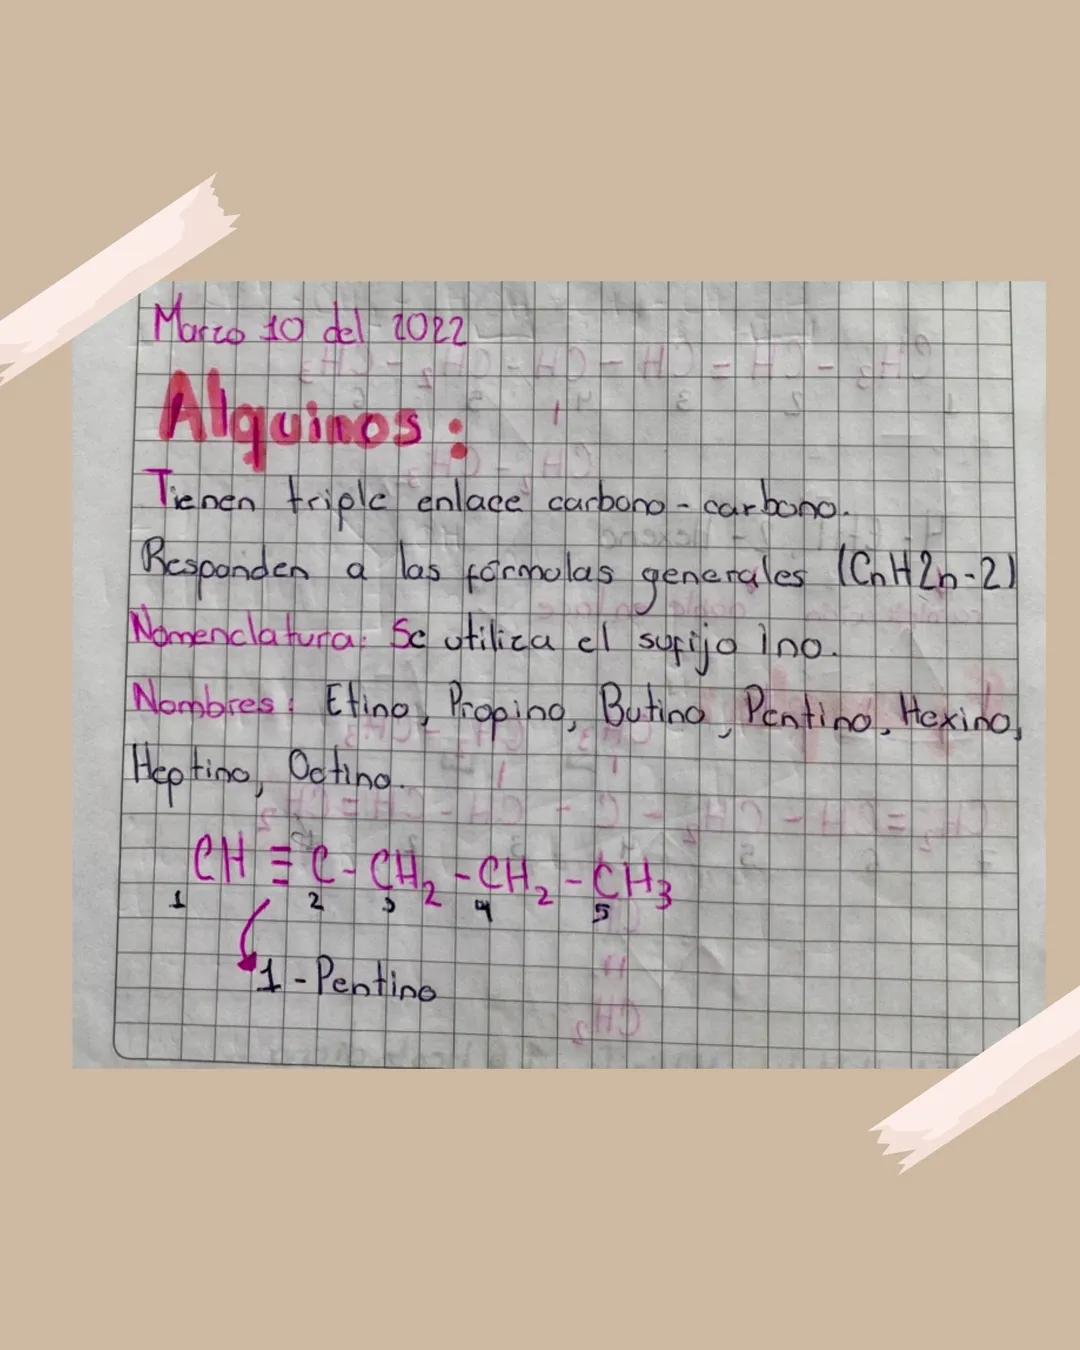 Marzo 10 del 2022
Alquinos:
Tienen triple enlace carbono-carbono.
Responden a las fórmulas generales (CnH2n-2)
Nomenclatura: Se utiliza el sufijo ino.
Nombres: Etino, Propino, Butino, Pentino, Hexino,
Heptino, Octino.
CH ≡ C - CH₂ - CH₂ - CH₃
1 2 3 4 5
1-Pentino